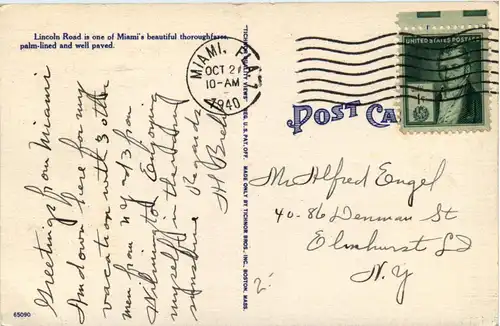 Lincoln Road is one of Miami's beautiful thoroughfares,
palm-lined and well paved.
Greetings from Miami
Am down here for my
vacation with 3 other
men from NY and 3 from
Wilmington Enjoying
myself in the
sunshine Regards
H
65090
"TICHNOR QUALITY VIEWS" REG. U. S. PAT. OFF. MADE ONLY BY TICHNOR BROS. INC. BOSTON, MASS.
MIAMI, FLA.
OCT 21
10-AM
1940
UNITED STATES POSTAGE
1¢
POST CA
Mr Alfred Engel
40-86 Denman St
Elmhurst LI
N.Y
2